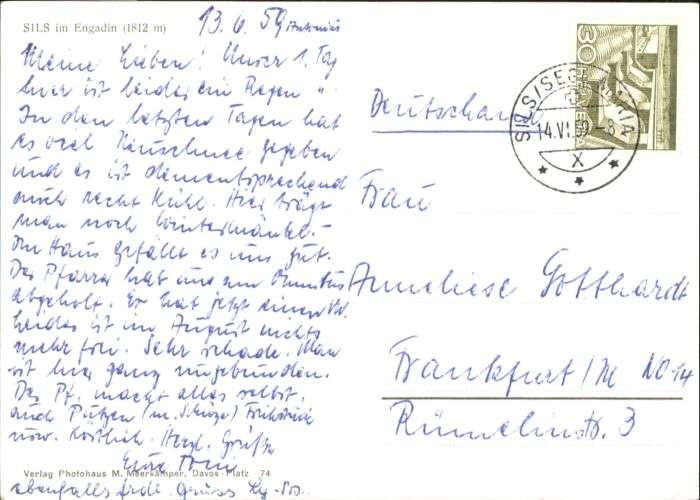 SILS im Engadin (1812 m)
13.6.59 Antonius
Meine Lieben! Unser 1. Tag
hier ist leider ein Regen
In den letzten Tagen hat
es viel Neuschnee gegeben
und es ist dementsprechend
auch recht kühl. Hier trägt
man noch Wintermäntel.-
Im Haus gefällt es uns gut.
Der Pfarrer hat uns am Omnibus
abgeholt. Er hat jetzt einen VW.
Leider ist im August nichts
mehr frei. Sehr schade. Man
ist hier ganz ungebunden.
Der Pf. macht alles selbst,
auch Putzen (m. Schürze) Frühstück
usw. Köstlich. Herzl. Grüße
Eure
ebenfalls
Verlag Photohaus M. Meerkämper, Davos-Platz 74
30
HELVETIA
SILS/SEGL MARIA
14.VI.59-8
X
Deutschland
Frau
Anneliese Gotthardt
Frankfurt/M NO-14
Rümelinstr. 3